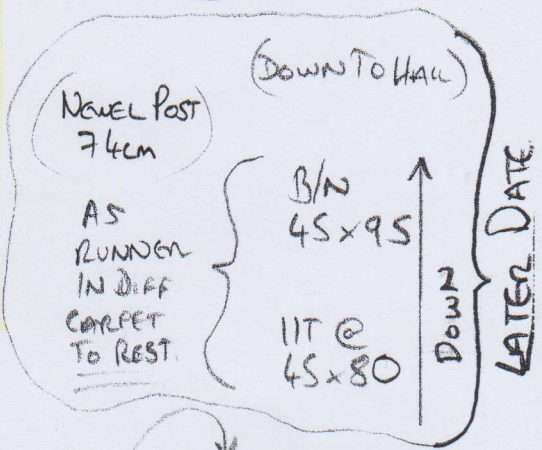 (DOWN TO HALL)
(NEWEL POST)
74cm
AS
RUNNER
IN DIFF
CARPET
TO REST.
B/N
45 x 95
11T @
45 x 80
DOWN
LATER DATE